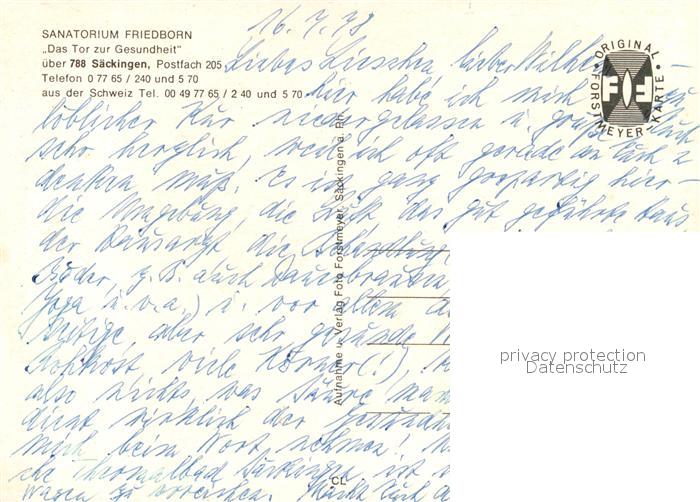 16.7.78
SANATORIUM FRIEDBORN
„Das Tor zur Gesundheit"
über 788 Säckingen, Postfach 205
Telefon 0 77 65 / 240 und 5 70
aus der Schweiz Tel. 00 49 77 65 / 2 40 und 5 70
Liebes Lieschen, lieber Wilhelm –
hier habe ich mich zu
löblicher Kur niedergelassen u. grüße Euch
sehr herzlich, weil ich oft gerade an Euch
denken muß. Es ist ganz großartig hier –
die Umgebung, die Luft, das gut geführte Haus
der Hausarzt, die
Bäder, z. B. auch
Yoga u. v. a.) u. vor allem
aber sehr gesunde
Rohkost, viele Körner (!),
also nichts, was
dient wirklich der Gesundheit
mich beim Wort nehmen!
Thermalbad Säckingen ist
Wagen zu erreichen.
ORIGINAL
FORSTMEYER-KARTE
FF
Aufnahme u. Verlag Foto Forstmeyer, Säckingen a. Rh.
CL
privacy protection
Datenschutz